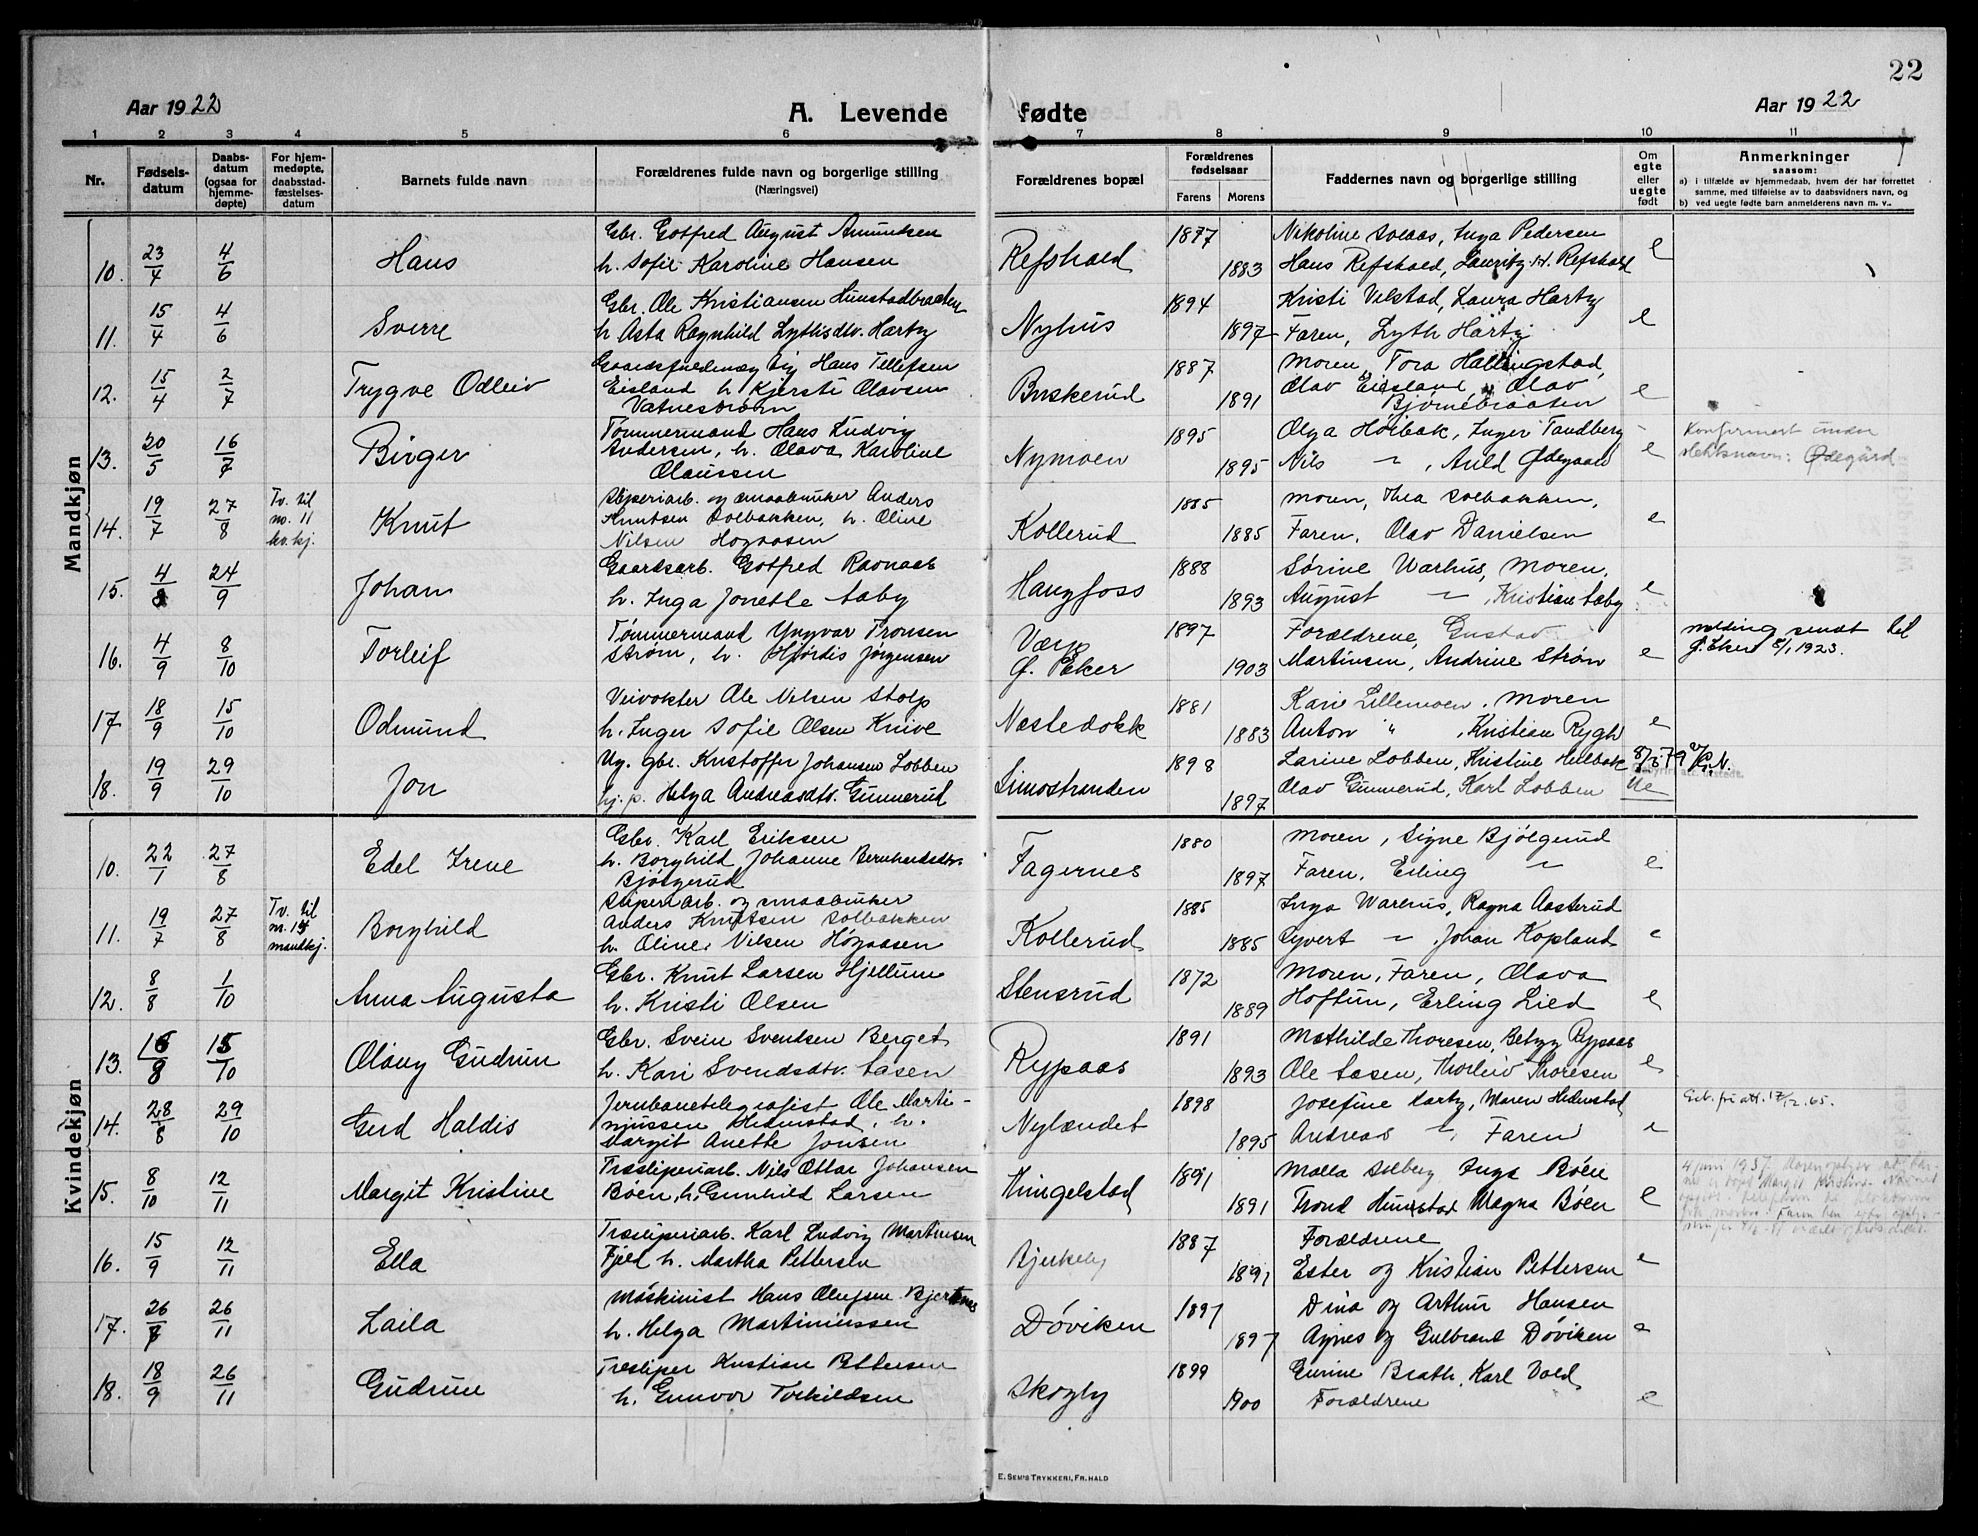 22
Aar 1922 A. Levende fødte Aar 1922
1 2 3 4 5 6 7 8 9 10 11
Nr. Fødsels-datum Daabs-datum (ogsaa for hjemme-døpte) For hjem-medøpte, daabsstad-fæstelses-datum Barnets fulde navn Forældrenes fulde navn og borgerlige stilling (Næringsvei) Forældrenes bopæl Forældrenes fødselsaar Farens Morens Faddernes navn og borgerlige stilling Om egte eller uegte født Anmerkninger saasom:
a) i tilfælde av hjemmedaab, hvem der har forrettet samme, med tilføielse av to daabsvidners navn, og
b) ved uegte fødte barn anmelderens navn m. v..
Mandkjøn
10. 23/4 4/6 Hans Gbr. Gotfred August Amundsen Refshald 1877 Nikoline Solaas, Inga Pedersen e
h. Sofie Karoline Hansen 1883 Hans Refshald, Lauritz H. Refshald
11. 15/4 4/6 Sverre Gbr. Ole Kristiansen Hunstadbraaten Nyhus 1894 Kristi Velstad, Laura Hartz e
h. Asta Ragnhild Lythisdtr. Hartz 1897 Faren, Lyth Hartz
12. 15/4 2/7 Trygve Odleiv Hans Tellefsen Buskerud 1887 Moren, Tora Hallingstad,
Eisland h. Kjersti Olavsen 1891 Olav Eisland, Olav e
Vatnesbrønn Bjørnebraaten
13. 30/5 16/7 Birger Tømmermand Hans Ludvig Nymoen 1895 Olga Hoibak, Inger Tandberg Konfirmert under
Andersen, h. Olava Karoline 1895 Nils " , Auld Ødegaard e slektsnavn: Ødegård
Olaussen
14. 19/7 27/8 Tv. til no. 11 kv.kj. Knut Sliperiarb. og smaabruker Anders Kollerud 1885 Moren, Thea Solbakken, e
Knutsen Solbakken, h. Oline 1885 Faren, Olav Danielsen
Nilsen Hogaasen
15. 4/8 24/9 Johan Gaardsarb. Gotfred Ravnaas Haugfoss 1888 Sørine Warhus, Moren, e
h. Inga Jonette Saby 1893 August " , Kristian Saby
16. 4/9 8/10 Torleif Tømmermand Yngvar Tronsen Værp 1897 Forældrene, Gustav melding sendt til
Strøm, h. Hjørdis Jørgensen Ø. Eker 1903 Martinsen, Andrine Strøm e Ø. Eker 5/1 1923.
17. 18/9 15/10 Odmund Veivokter Ole Nilsen Stolp Næstedokk 1881 Kari Lillemoen, Moren e
h. Inger Sofie Olsen Knive 1883 Anton " , Kristian Rygh
18. 19/9 29/10 Jon Ug. gbr. Kristoffer Johansen Lobben Simostranden 1898 Larine Lobben, Kristine Helbak
pj. p. Helga Andreasdtr. Gunnerud 1897 Olav Gunnerud, Karl Lobben Ue
Kvindekjøn
10. 22/1 27/8 Edel Irene Gbr. Karl Eriksen Fagernes 1880 Moren, Signe Bjølgerud e
h. Borghild Johanne Bernhardsdtr. 1897 Faren, Erling "
Bjølgerud
11. 19/7 27/8 Tv. til nr. 14 mandkj. Borghild Sliperiarb. og smaabruker Kollerud 1885 Inga Warhus, Ragna Aasterud
Anders Knutsen Solbakken 1885 Syvert " , Johan Kopland e
h. Oline Nilsen Høgaasen
12. 8/8 1/10 Anna Augusta Gbr. Knut Larsen Hjellum Stensrud 1872 Moren, Faren, Olava
h. Kristi Olsen 1889 Hoftun, Erling Lied e
13. 16/8 15/10 Olaug Gudrun Gbr. Svein Svendsen Berget Rypaas 1891 Mathilde Thoresen, Betzy Rypaas
h. Kari Svendsdtr. Aasen 1893 Ole Aasen, Thorleiv Thoresen e
14. 28/8 29/10 Gerd Haldis Jernbanetelegrafist Ole Marti- Nylændet 1898 Josefine Hartz, Maren Hedenstad Geb. fri att. 17/12.65.
niussen Hedenstad, h. 1895 Andreas " , Faren e
Margit Anette Jonsen
15. 8/10 12/11 Margit Kristine Træsliperiarb. Nils Ottar Johansen Hingelstad 1891 Malla Solberg Inga Böen 4 juni 1937
Böen, h. Gunhild Larsen 1891 Trond Hunstad Magna Böen e
16. 15/9 12/11 Ella Træsliperiarb. Karl Ludvig Martinsen Bjerkeby 1887 Forældrene e
Fjeld h. Martha Pettersen 1891 Ester og Kristian Pettersen
17. 26/7 26/11 Laila Maskinist Hans Olufsen Bjertnes Døviken 1897 Dina og Arthur Hansen
h. Helga Martiniussen 1897 Agnes og Gulbrand Døviken e
18. 18/9 26/11 Gudrun Træsliper Kristian Pettersen Skogly 1899 Gunine Braath, Karl Vold
h. Gunvor Torkildsen 1900 Forældrene e
E. SEM'S TRYKKERI, FR.HALD